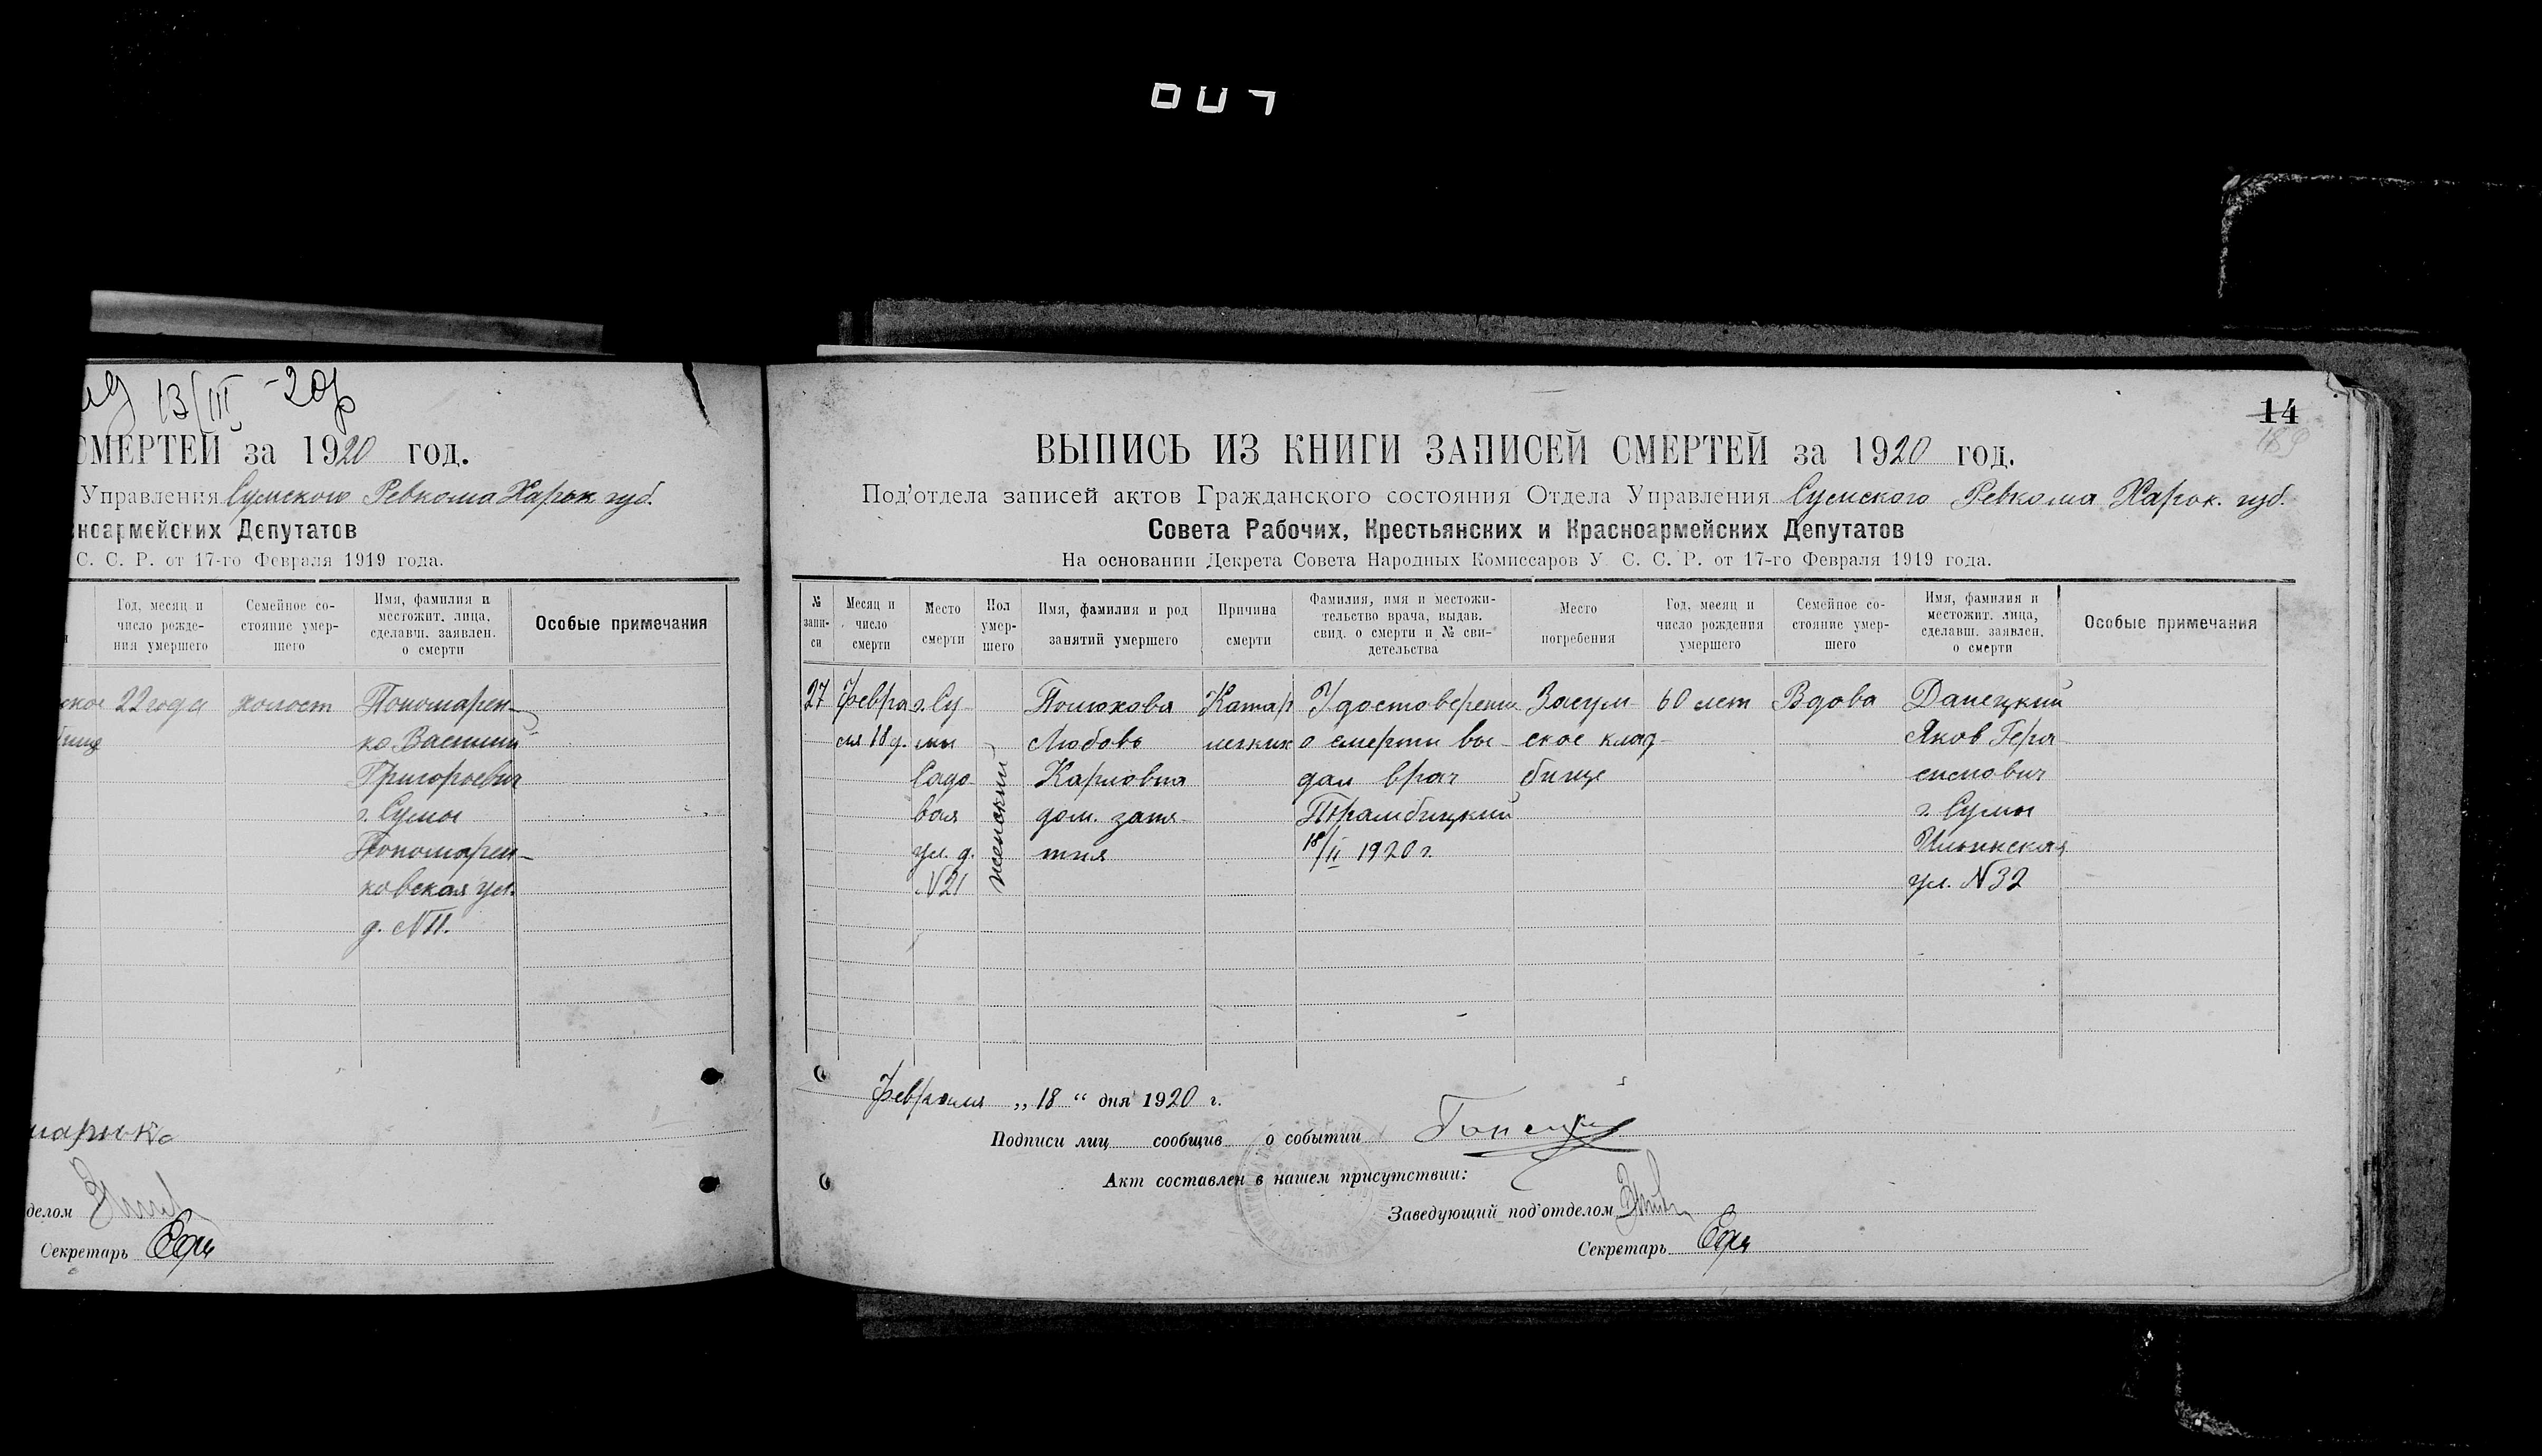 13/III -20
СМЕРТЕЙ за 1920 год.
Управления Сумского Ревкома Харьк. губ.
ноармейских Депутатов
С. С. Р. от 17-го Февраля 1919 года.
Год, месяц и число рождения умершего
Семейное состояние умершего
Имя, фамилия и местожит. лица, сделавш. заявлен. о смерти
Особые примечания
22 года холост Пономарен-
ко Василий
Григорьевич
г. Сумы
Пономарен-
ковская ул.
д. N 11.
делом
Секретарь
14
ВЫПИСЬ ИЗ КНИГИ ЗАПИСЕЙ СМЕРТЕЙ за 1920 год.
Под'отдела записей актов Гражданского состояния Отдела Управления Сумского Ревкома Харьк. губ.
Совета Рабочих, Крестьянских и Красноармейских Депутатов
На основании Декрета Совета Народных Комиссаров У. С. С. Р. от 17-го Февраля 1919 года.
№ записи
Месяц и число смерти
Место смерти
Пол умершего
Имя, фамилия и род занятий умершего
Причина смерти
Фамилия, имя и местожительство врача, выдав. свид. о смерти и № свидетельства
Место погребения
Год, месяц и число рождения умершего
Семейное состояние умершего
Имя, фамилия и местожит. лица, сделавш. заявлен. о смерти
Особые примечания
27 Февра г. Су- Катар Удостоверение Засум- 60 лет Вдова
ля 18 д. мы Любовь легких о смерти вы- ское клад-
Садо- Карловна дал врач бище Яков Гера-
вая дом. заня- г. Сумы
ул. д. тия 18/II 1920 г. Ильинская
N 21 ул. N 32
женский
Февраля „ 18 “ дня 1920 г.
Подписи лиц сообщив о событии
Акт составлен в нашем присутствии:
Заведующий под'отделом
Секретарь